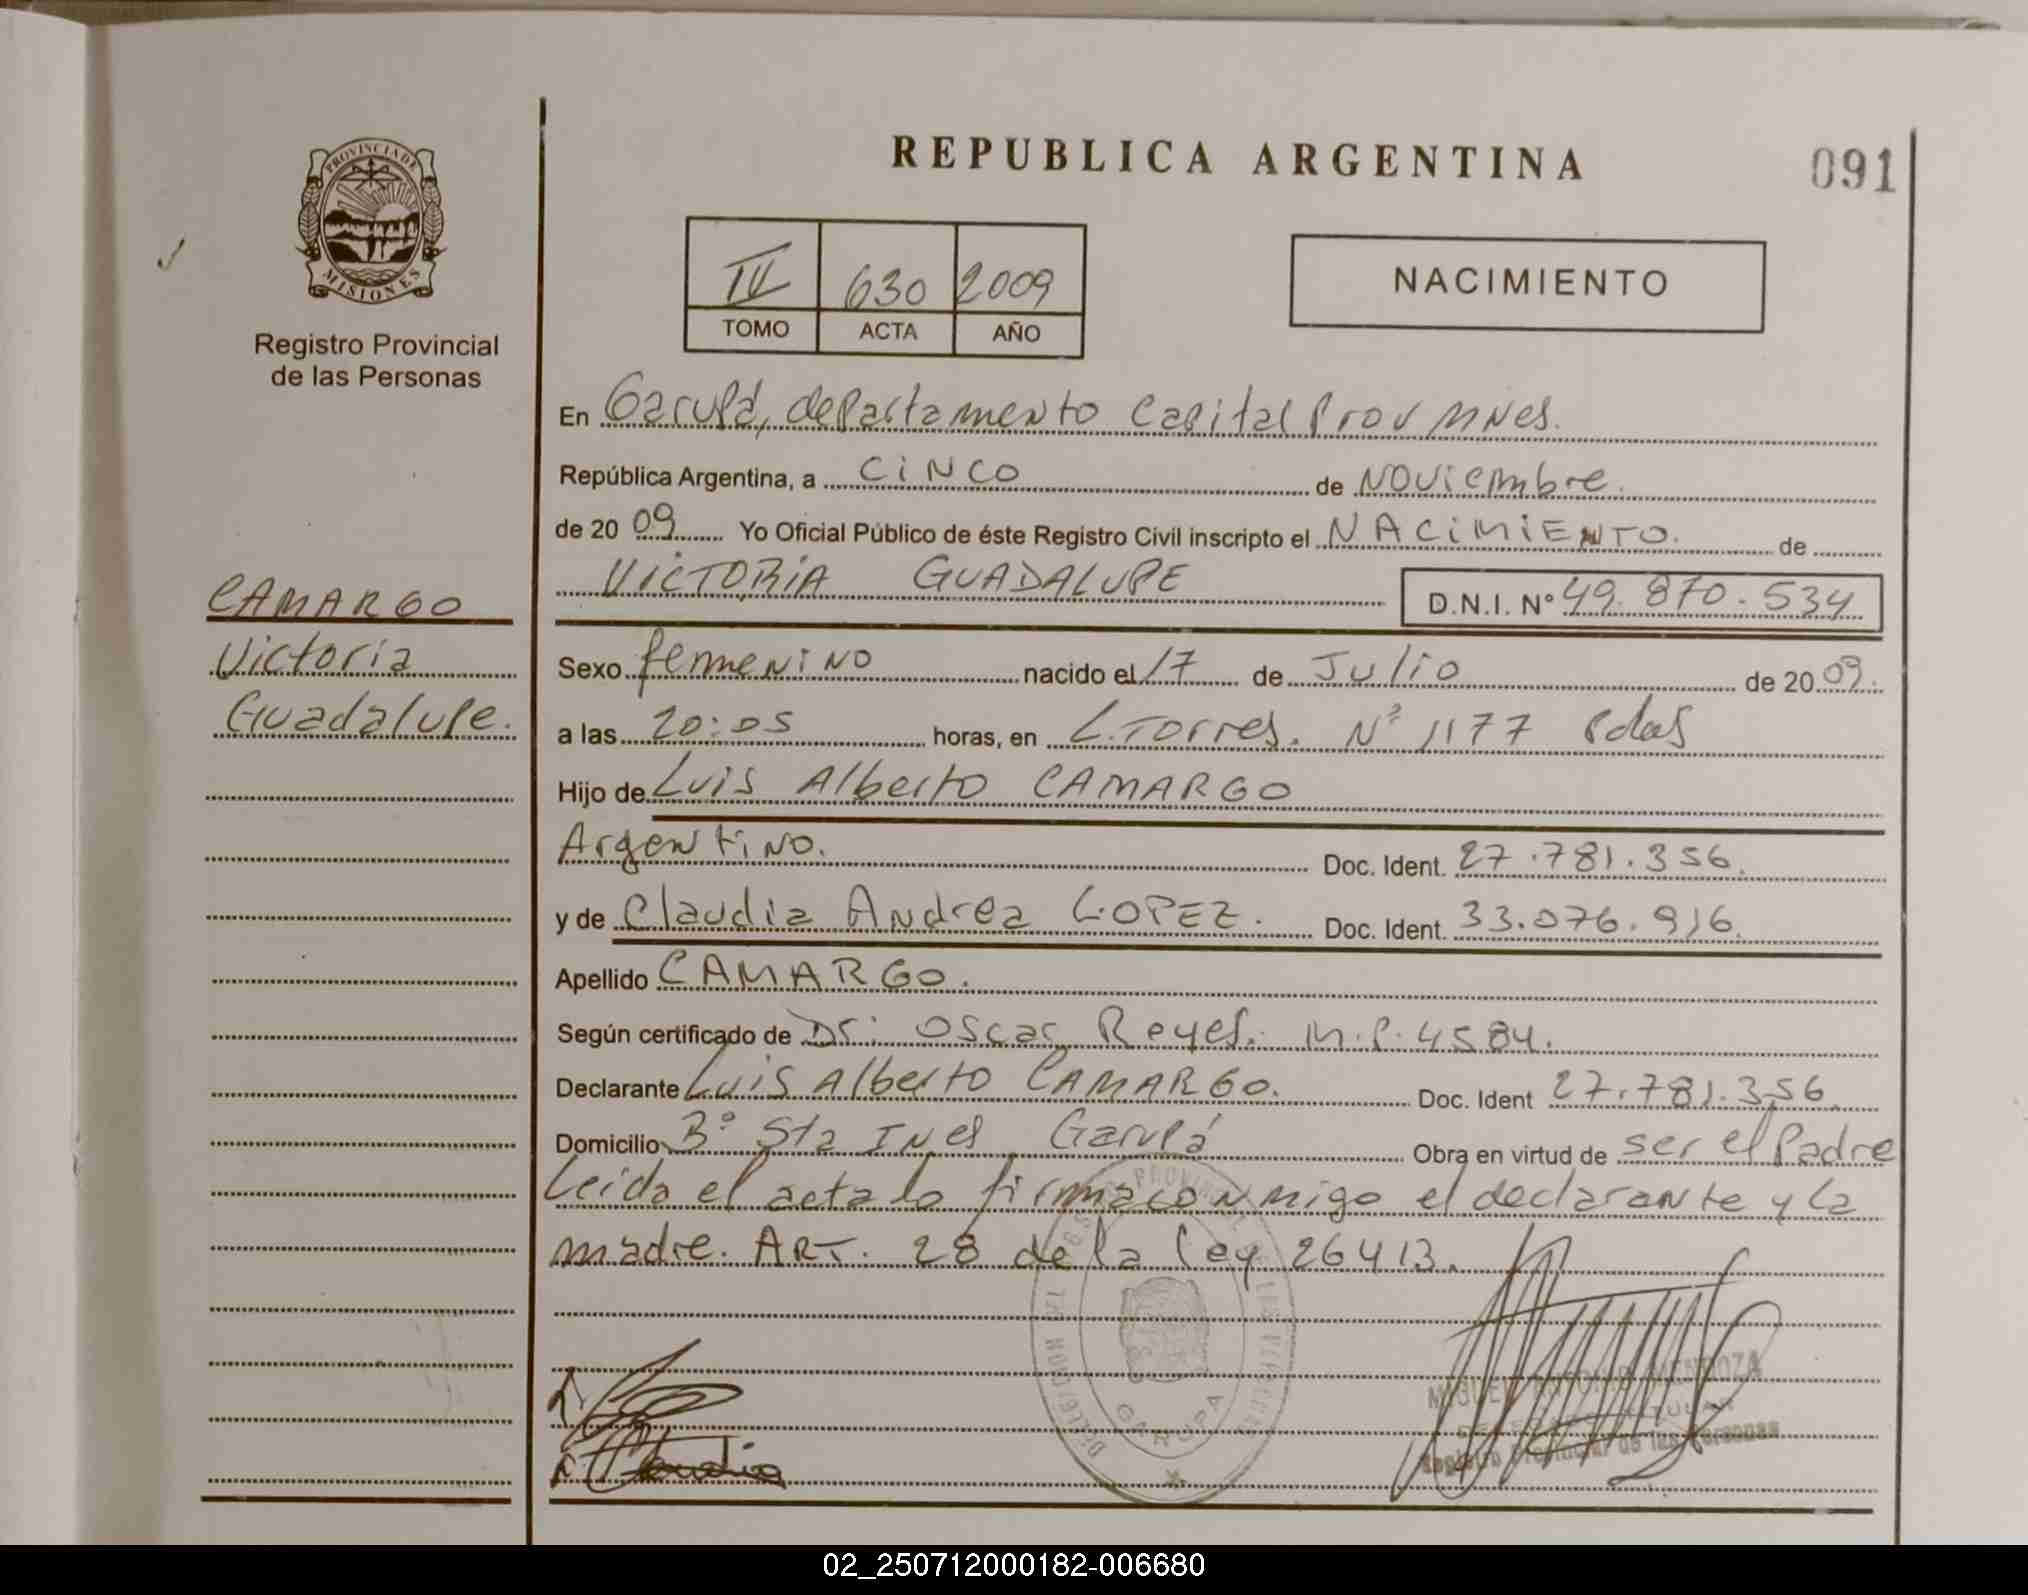 REPUBLICA ARGENTINA
091
PROVINCIA DE
MISIONES
Registro Provincial
de las Personas
IV 630 2009
TOMO ACTA AÑO
NACIMIENTO
En Garupá, departamento Capital Prov Mnes.
República Argentina, a CINCO de Noviembre.
de 20 09 Yo Oficial Público de éste Registro Civil inscripto el NACIMIENTO. de
VICTORIA GUADALUPE D.N.I. Nº 49.870.534
CAMARGO
Victoria
Guadalupe.
Sexo femenino nacido el 17 de Julio de 20 09.
a las 20:05 horas, en L. Torres. Nº 1177 Pdas
Hijo de Luis Alberto CAMARGO
Argentino. Doc. Ident. 27.781.356.
y de Claudia Andrea LOPEZ. Doc. Ident. 33.076.916.
Apellido CAMARGO.
Según certificado de Dr: Oscar Reyes. M.P. 4584.
Declarante Luis Alberto CAMARGO. Doc. Ident 27.781.356.
Domicilio Bº Sta Ines Garupá Obra en virtud de ser el Padre
Leida el acta la firma conmigo el declarante y la
madre. ART. 28 de la ley 26413.
GARUPA
Claudia
MIGUEL ANTONIO MENDOZA
DELEGADO TITULAR
Registro Provincial de las Personas
02_250712000182-006680